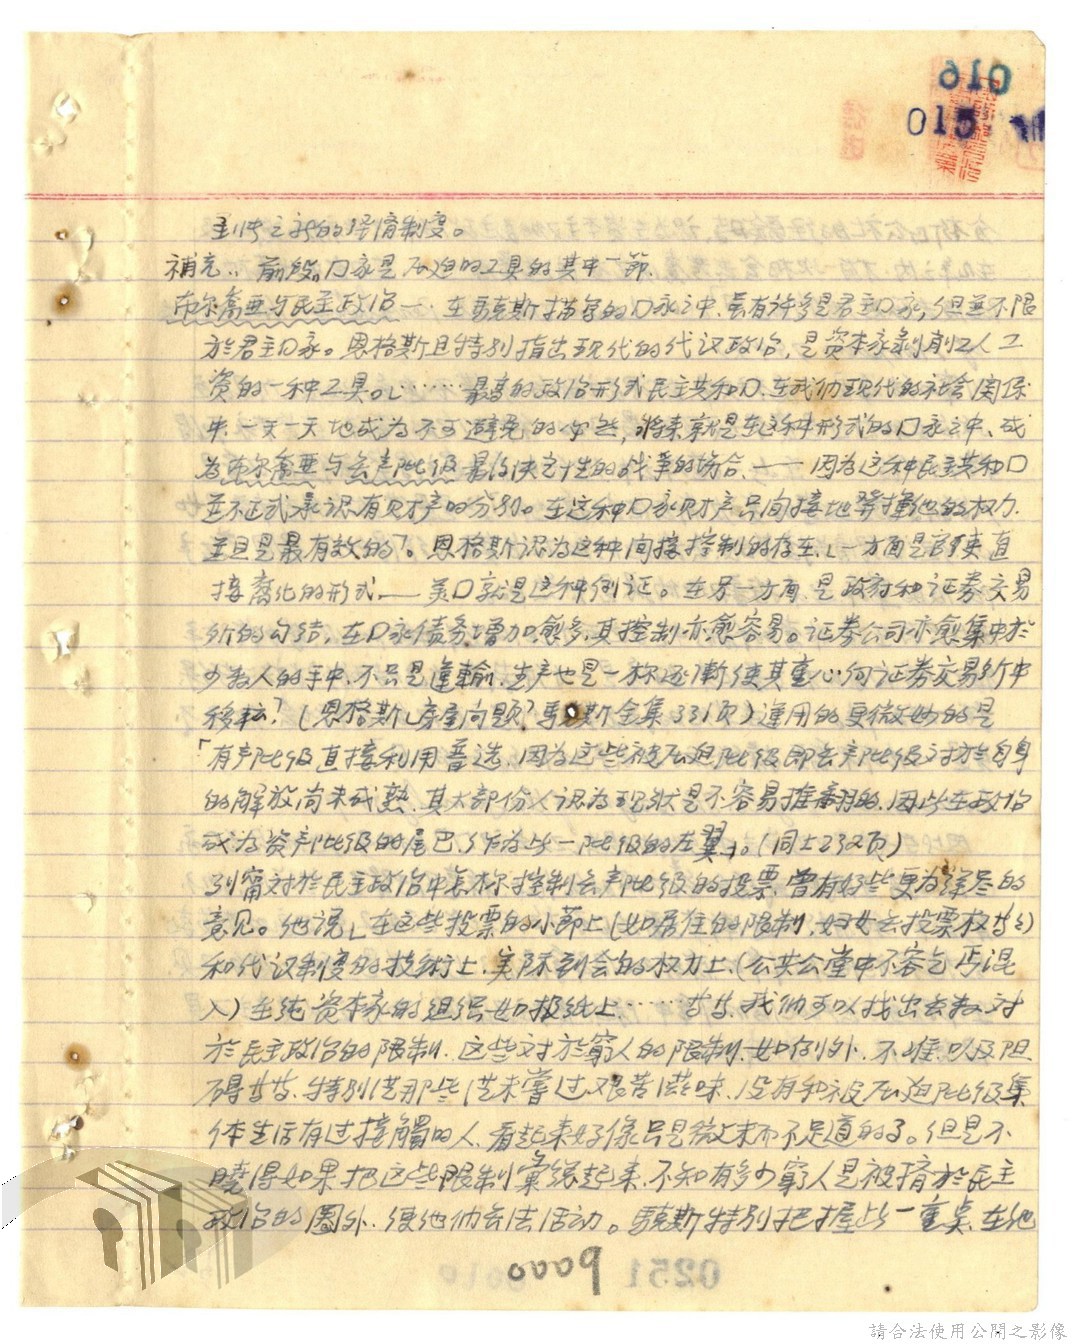 016
015
主性之新的经济制度。
补充：前段。口家是压迫的工具的其中一節.
布尔喬亚与民主政治—— 在馬克斯描写的口家之中.虽有许多是君主口家,但並不限
於君主口家。恩格斯且特别指出现代的代议政治,是资本家剥削工人工
资的一种工具。「……最高的政治形式民主共和口.在我们现代的社会関係
中.一天一天地成为不可避免的必然,将来就是在这种形式的口家之中、成
为布尔喬亚与无产阶级最后决定性的战争的场合.——因为这种民主共和口
並不正式承认有财产的分别。在这种口家财产只间接地掌握他的权力.
並且是最有效的」。恩格斯认为这种间接控制的存在.「一方面是官吏直
接腐化的形式——美口就是这种例证。在另一方面.是政府和证券交易
所的勾结,在口家债务增加愈多,其控制亦愈容易。证券公司亦愈集中於
少数人的手中.不只是運輸.生产也是一样逐漸使其重心向证券交易所中
移転」(恩格斯「房屋问题」馬克斯全集331页)運用的更微妙的是
「有产阶级直接利用普选.因为这些被压迫阶级即无产阶级对於自身
的解放尚未成熟.其大部份人认为现狀是不容易推翻的.因此在政治
成为资产阶级的尾巴.作为此一阶级的左翼」。(同上232页)
列甯对於民主政治中怎样控制无产阶级的投票.曾有好些更为详尽的
意见。他说「在这些投票的小節上(如居住的限制,妇女无投票权等)
和代议制度的技術上.实际到会的权力上.(公共公堂中不容乞丐混
入)在純资本家的组织如报纸上……等等.我们可以找出无数对
於民主政治的限制.这些对於窮人的限制.如例外.不准.以及阻
碍等等.特别是那些從未嘗过艰苦滋味.没有和被压迫阶级集
体生活有过接觸的人.看起来好像只是微末而不足道的了。但是不
曉得如果把这些限制彙總起来.不知有多少窮人是被擠於民主
政治的圈外.使他们无法活动。馬克斯特别把握此一重点.在他
0251
請合法使用公開之影像